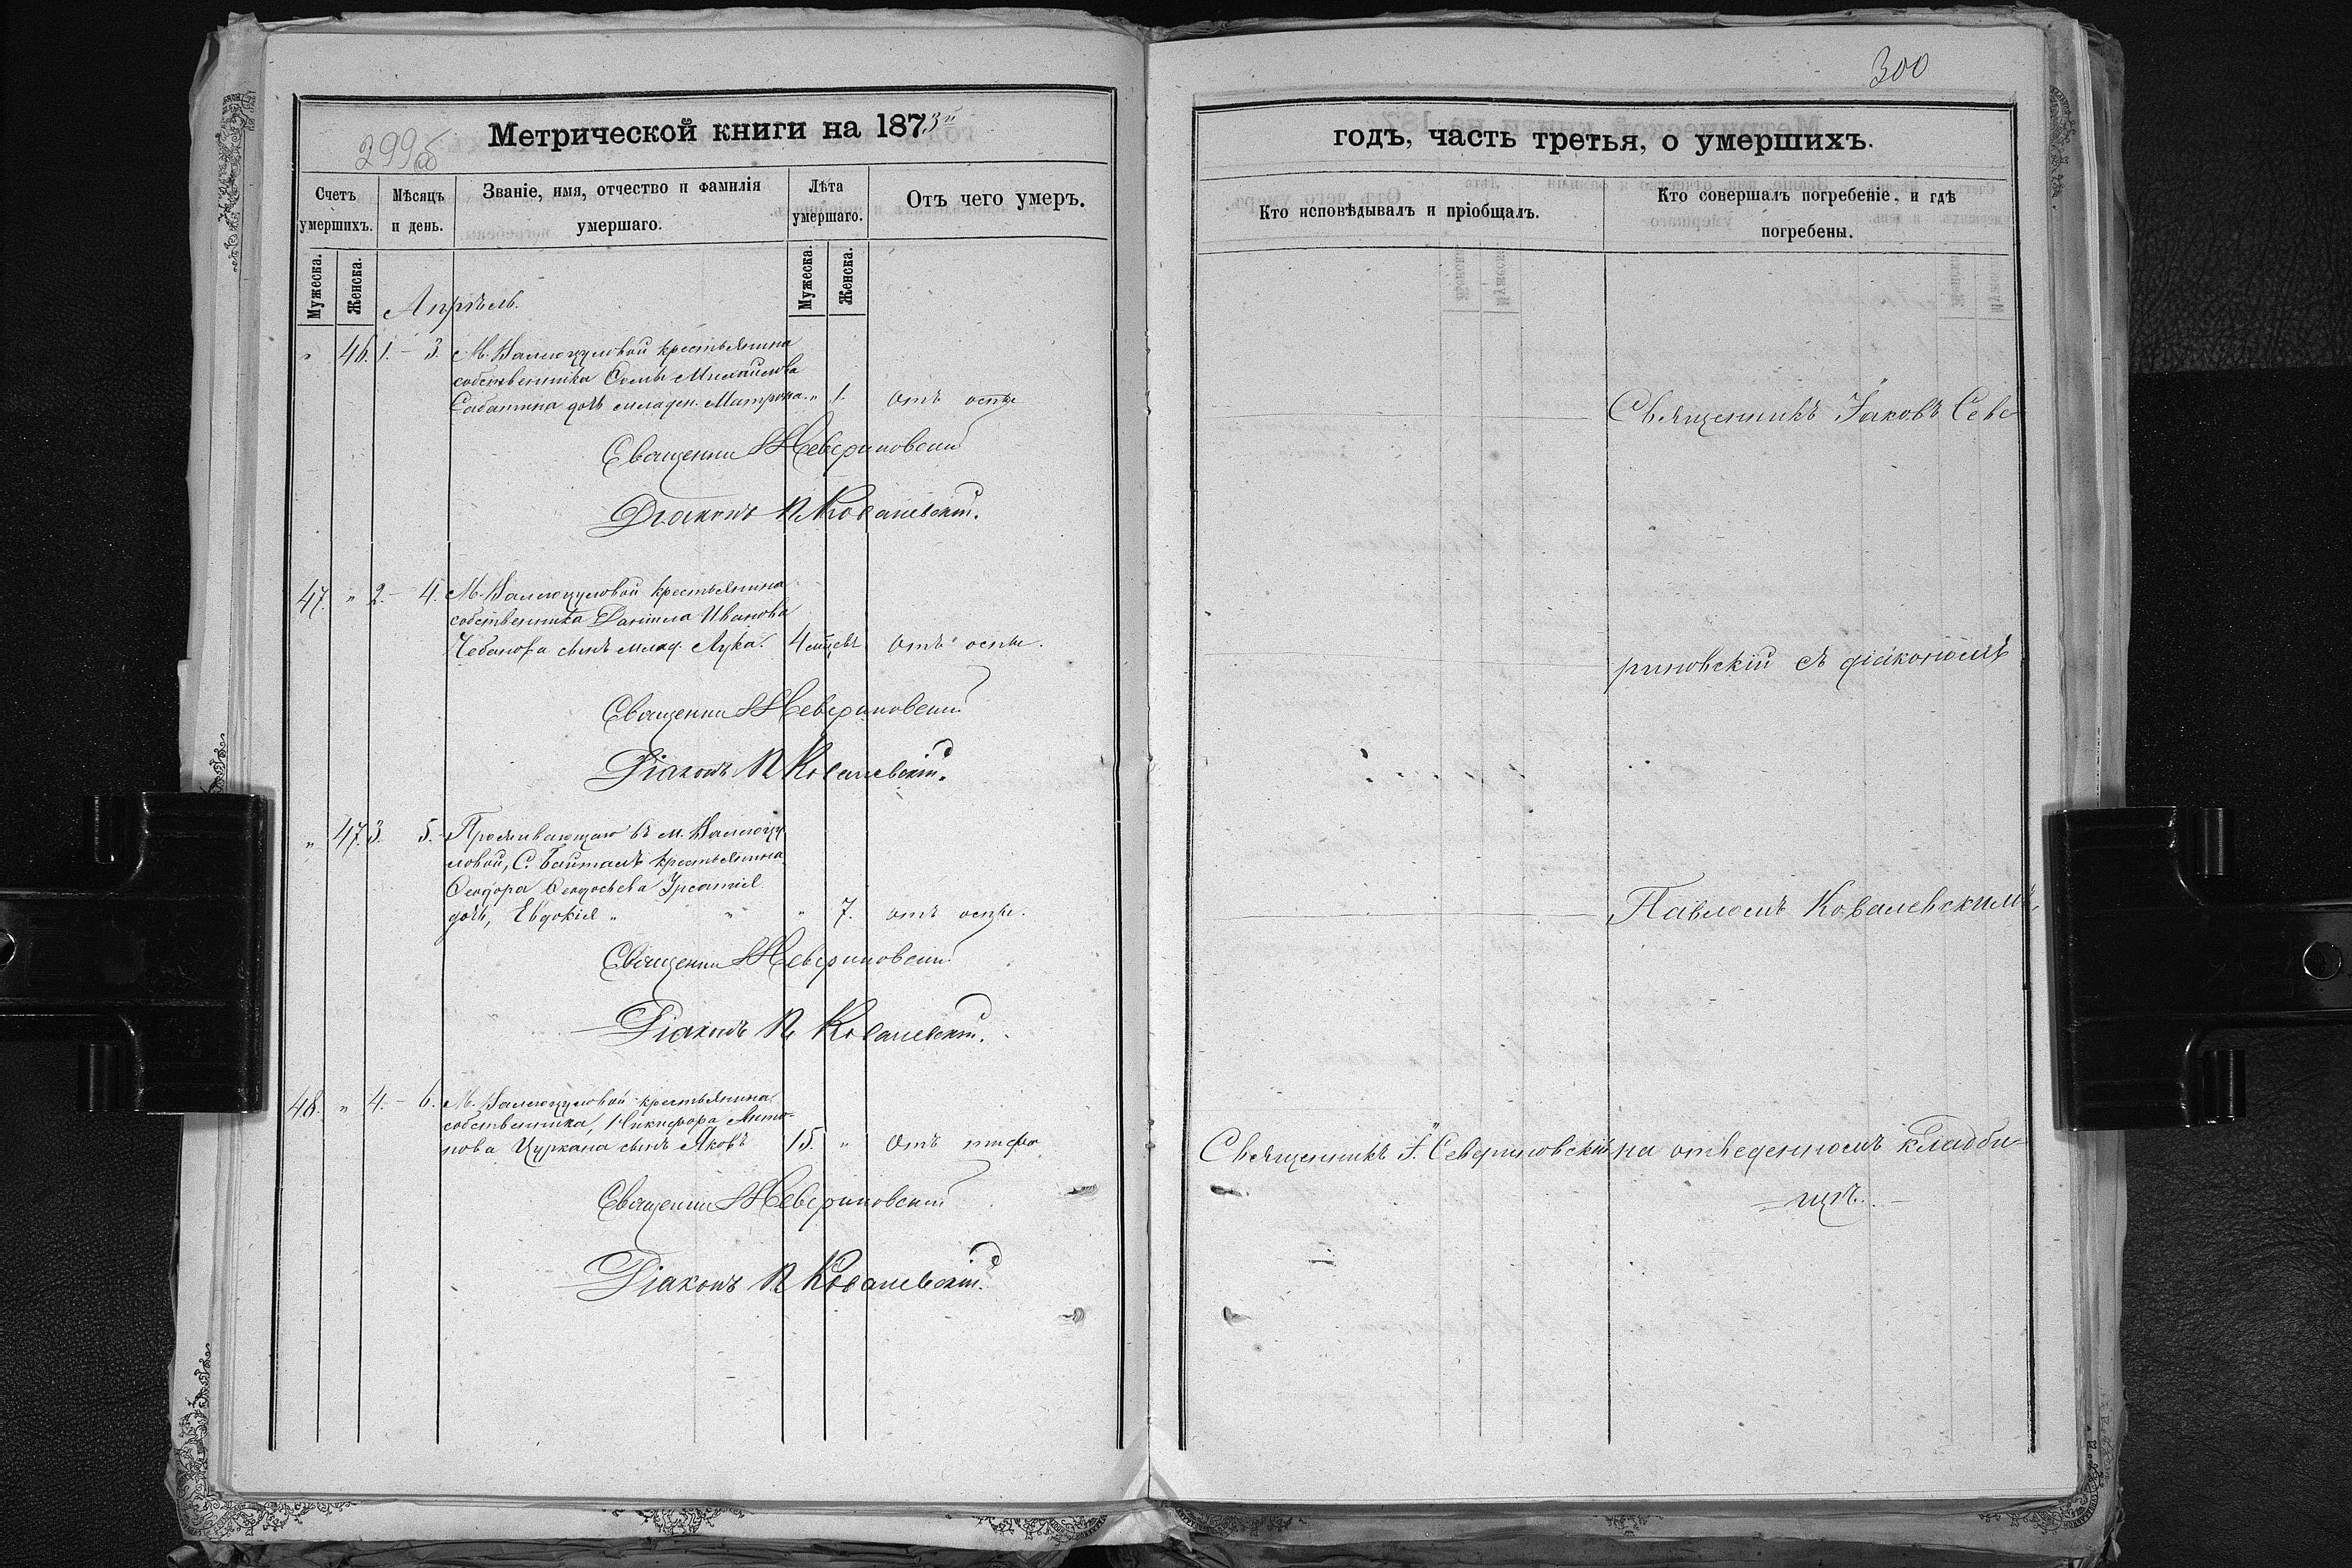 299об
Метрической книги на 1873й
Счетъ умершихъ.
Мѣсяцъ и день.
Званіе, имя, отчество и фамилія умершаго.
Лѣта умершаго.
Отъ чего умеръ.
Мужеска.
Женска.
Мужеска.
Женска.
Апрѣль.
" 46. 1. – 3. М. крестьянина
собственника Ѳомы Михайлова
дочь младен. Матрона. " 1. Отъ оспы
Священни Севериновскій
Діаконъ П Ковалевскій.
47. " 2. – 4. М. крестьянина
собственника Даніила Иванова
Чебанова сынъ млад. Лука. 4 мцевъ Отъ оспы.
Священни Севериновскій
Діаконъ П Ковалевскій.
" 47. 3. 5. Проживающаго въ м.
С. крестьянина
Ѳеодора Ѳеодосьева
дочь, Евдокія " " " 7. отъ оспы.
Священни Севериновскій
Діаконъ П Ковалевскій.
48. " 4. – 6. М. крестьянина
собственника, Никифора Анто-
нова Цуркана сынъ Яковъ 15. " Отъ тифа
Священни Севериновскій
Діаконъ П Ковалевскій.
300
годъ, часть третья, о умершихъ.
Кто исповѣдывалъ и пріобщалъ.
Кто совершалъ погребеніе, и гдѣ
погребены.
Священникъ Іаковъ Севе-
риновскій съ діакономъ
Павломъ Ковалевскимъ,
Священникъ І. Севериновскій на отведенномъ кладби-
щѣ.